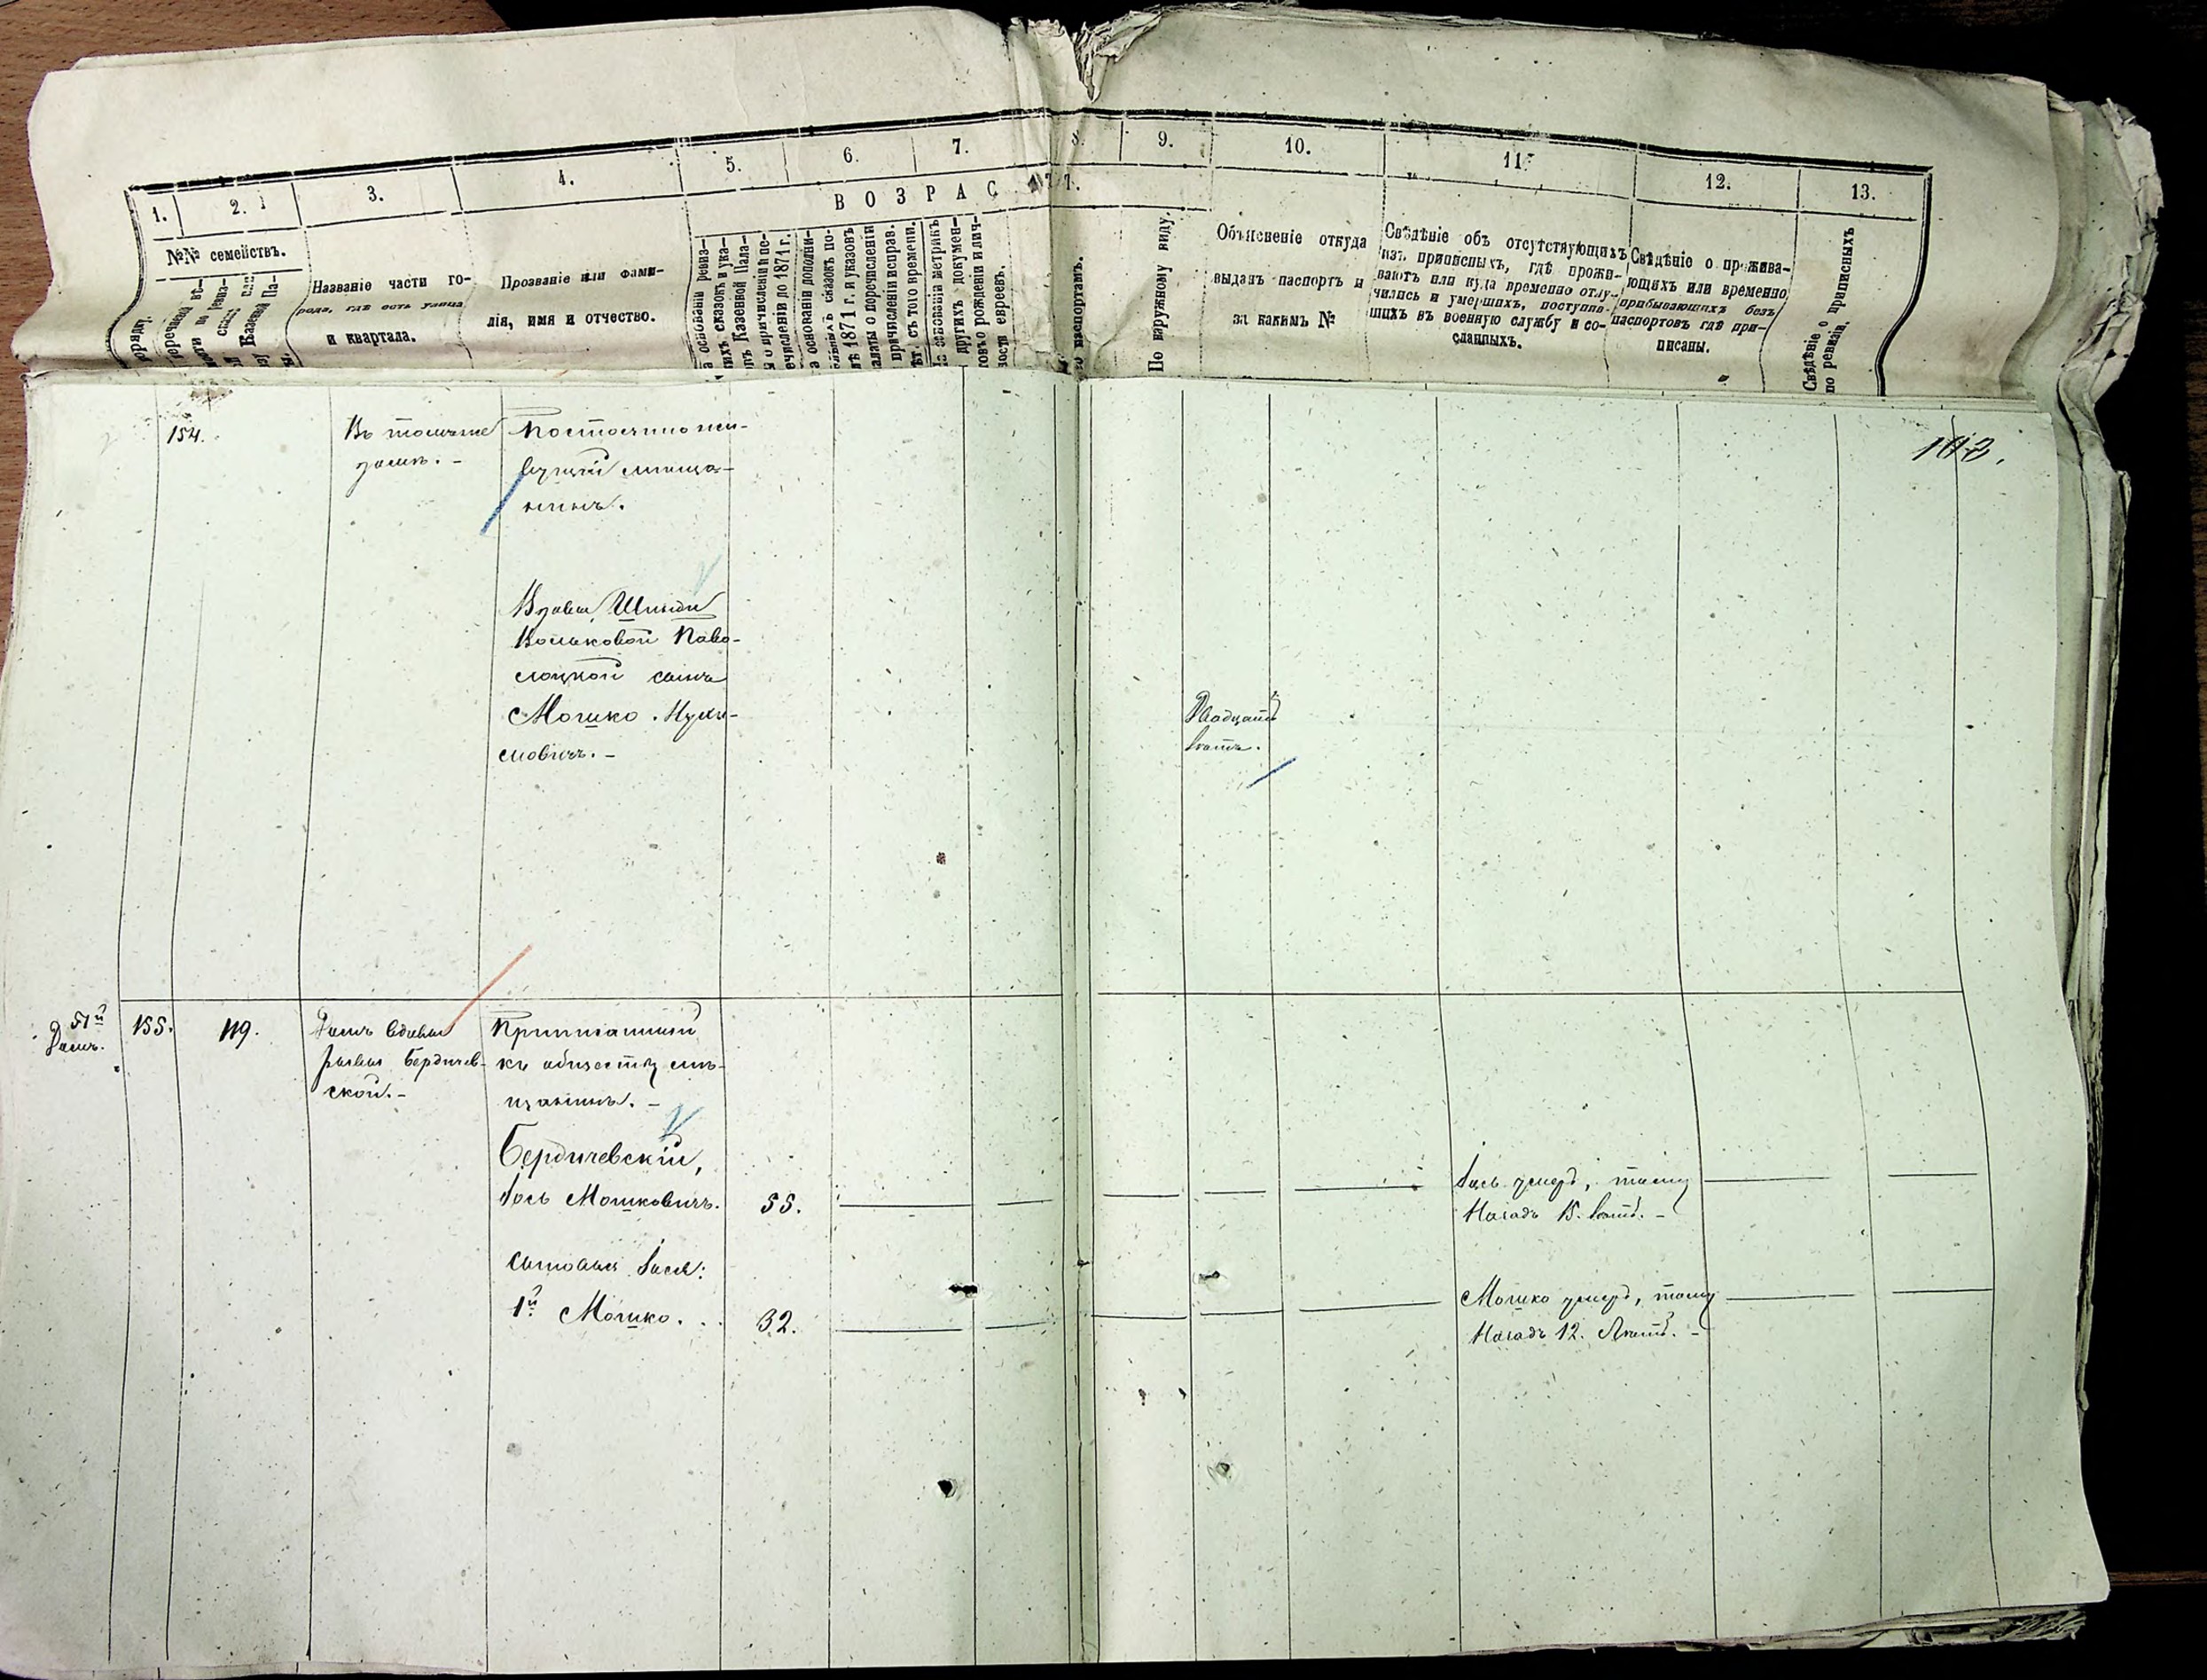 1. 2. 3. 4. 5. 6. 7. 8. 9. 10. 11. 12. 13.
ВОЗРАСТЪ.
№№ семействъ.
Названіе части го-
рода, гдѣ есть улица
и квартала.
Прозваніе или фами-
лія, имя и отчество.
а основаніи ревиз-
ихъ сказокъ и ука-
Казенной Пала-
о причисленіи и пе-
ечисленіи до 1871 г.
а основаніи дополни-
сказокъ по-
1871 г. и указовъ
алаты о перечисленіи
причисленіи исправ.
съ того времени.
основаніи метрикъ
другихъ докумен-
овъ о рожденіи и лич-
ности евреевъ.
паспортамъ.
По наружному виду.
Объясненіе откуда
выданъ паспортъ и
за какимъ №
Свѣдѣніе объ отсутствующихъ
изъ приписныхъ, гдѣ прожи-
ваютъ или куда временно отлу-
чились и умершихъ, поступив-
шихъ въ военную службу и со-
сланныхъ.
Свѣдѣніе о прожива-
ющихъ или временно
прибывающихъ безъ
паспортовъ гдѣ при-
писаны.
Свѣдѣніе о приписныхъ
по ревизіи.
154.
Въ томъ же
домѣ. -
Постоянно жи-
вущій мѣща-
нинъ.
Вдовы
Павo-
лоцкой сынъ
Мошко Нухи-
мовичъ. -
Двадцать
лѣтъ.
51й
Домъ.
155.
119.
Домъ вдовы
Бердичев-
ской. -
Приписанный
къ обществу мѣ-
щанинъ. -
Бердичевскій,
Іось Мошковичъ.
55.
Іось умеръ, тому
Назадъ 15. лѣтъ. -
Сыновья Іося:
1й Мошко. . .
32.
Мошко умеръ, тому
Назадъ 12. Лѣтъ. -